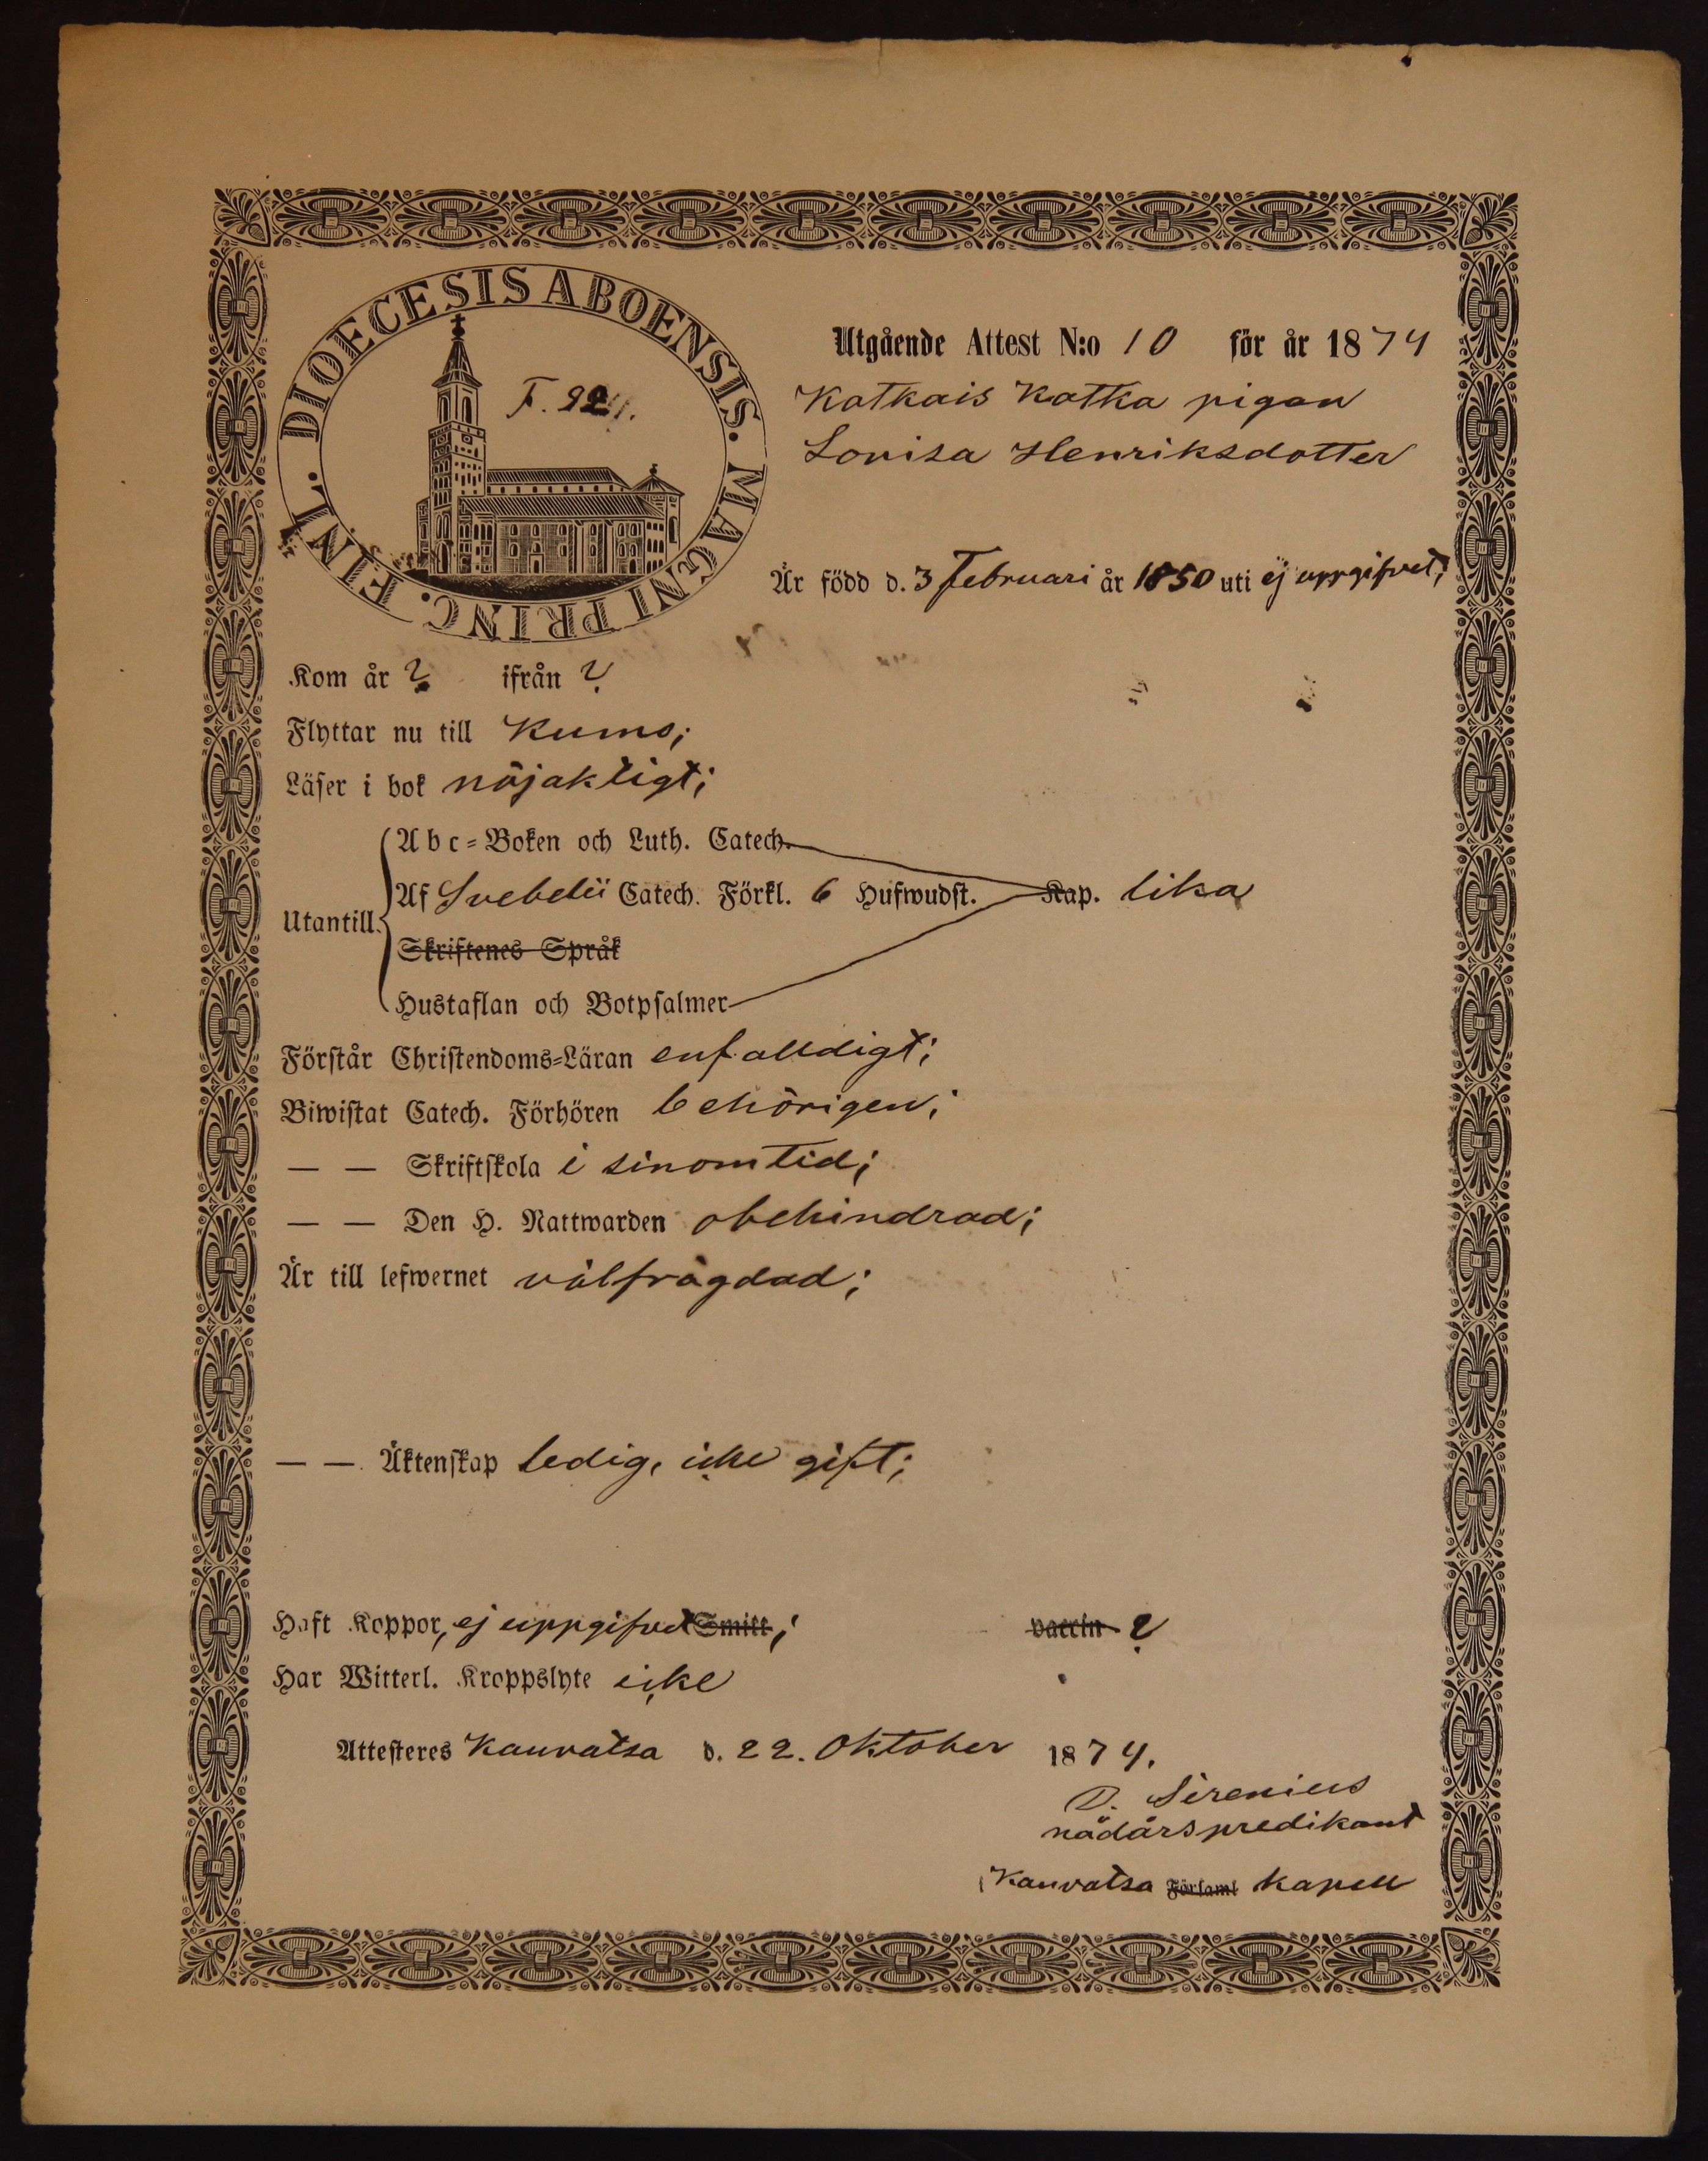 DIOECESIS ABOENSIS. MAGNI PRINC. FINL.
Utgående Attest N:o 10 för år 1874
Katkais Katka pigan
Lovisa Henriksdotter
Är född d. 3 Februari år 1850 uti ej uppgifvet;
Kom år ? ifrån ?
Flyttar nu till Kumo;
Läser i bok nöjaktigt;
Utantill.
Abc-Boken och Luth. Catech.
Af Svebelii Catech. Förkl. 6 Hufwudst. Kap. lika
Skriftenes Språk
Hustaflan och Botpsalmer
Förstår Christendoms-Läran enfalldigt;
Biwistat Catech. Förhören behörigen;
— — Skriftskola i sinom tid;
— — Den H. Nattwarden obehindrad;
Är till lefwernet välfrägdad;
— — Äktenskap ledig, icke gift;
Haft Koppor, ej uppgifvet Smitt; vaccin ?
Har Witterl. Kroppslyte icke
Attesteres Kauvatsa d. 22. Oktober 1874.
D. Sirenius
nådårspredikant
i Kauvatsa Församl kapell